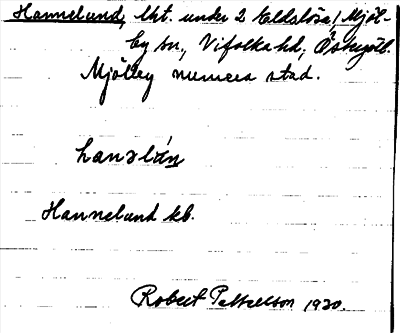 Hannelund, lht. under 2 Eldslösa, Mjöl-
by sn, Vifolka hd, Östergötl.
Mjölby numera stad.
hanalún
Hannelund kb.
Robert Pettersson 1930.